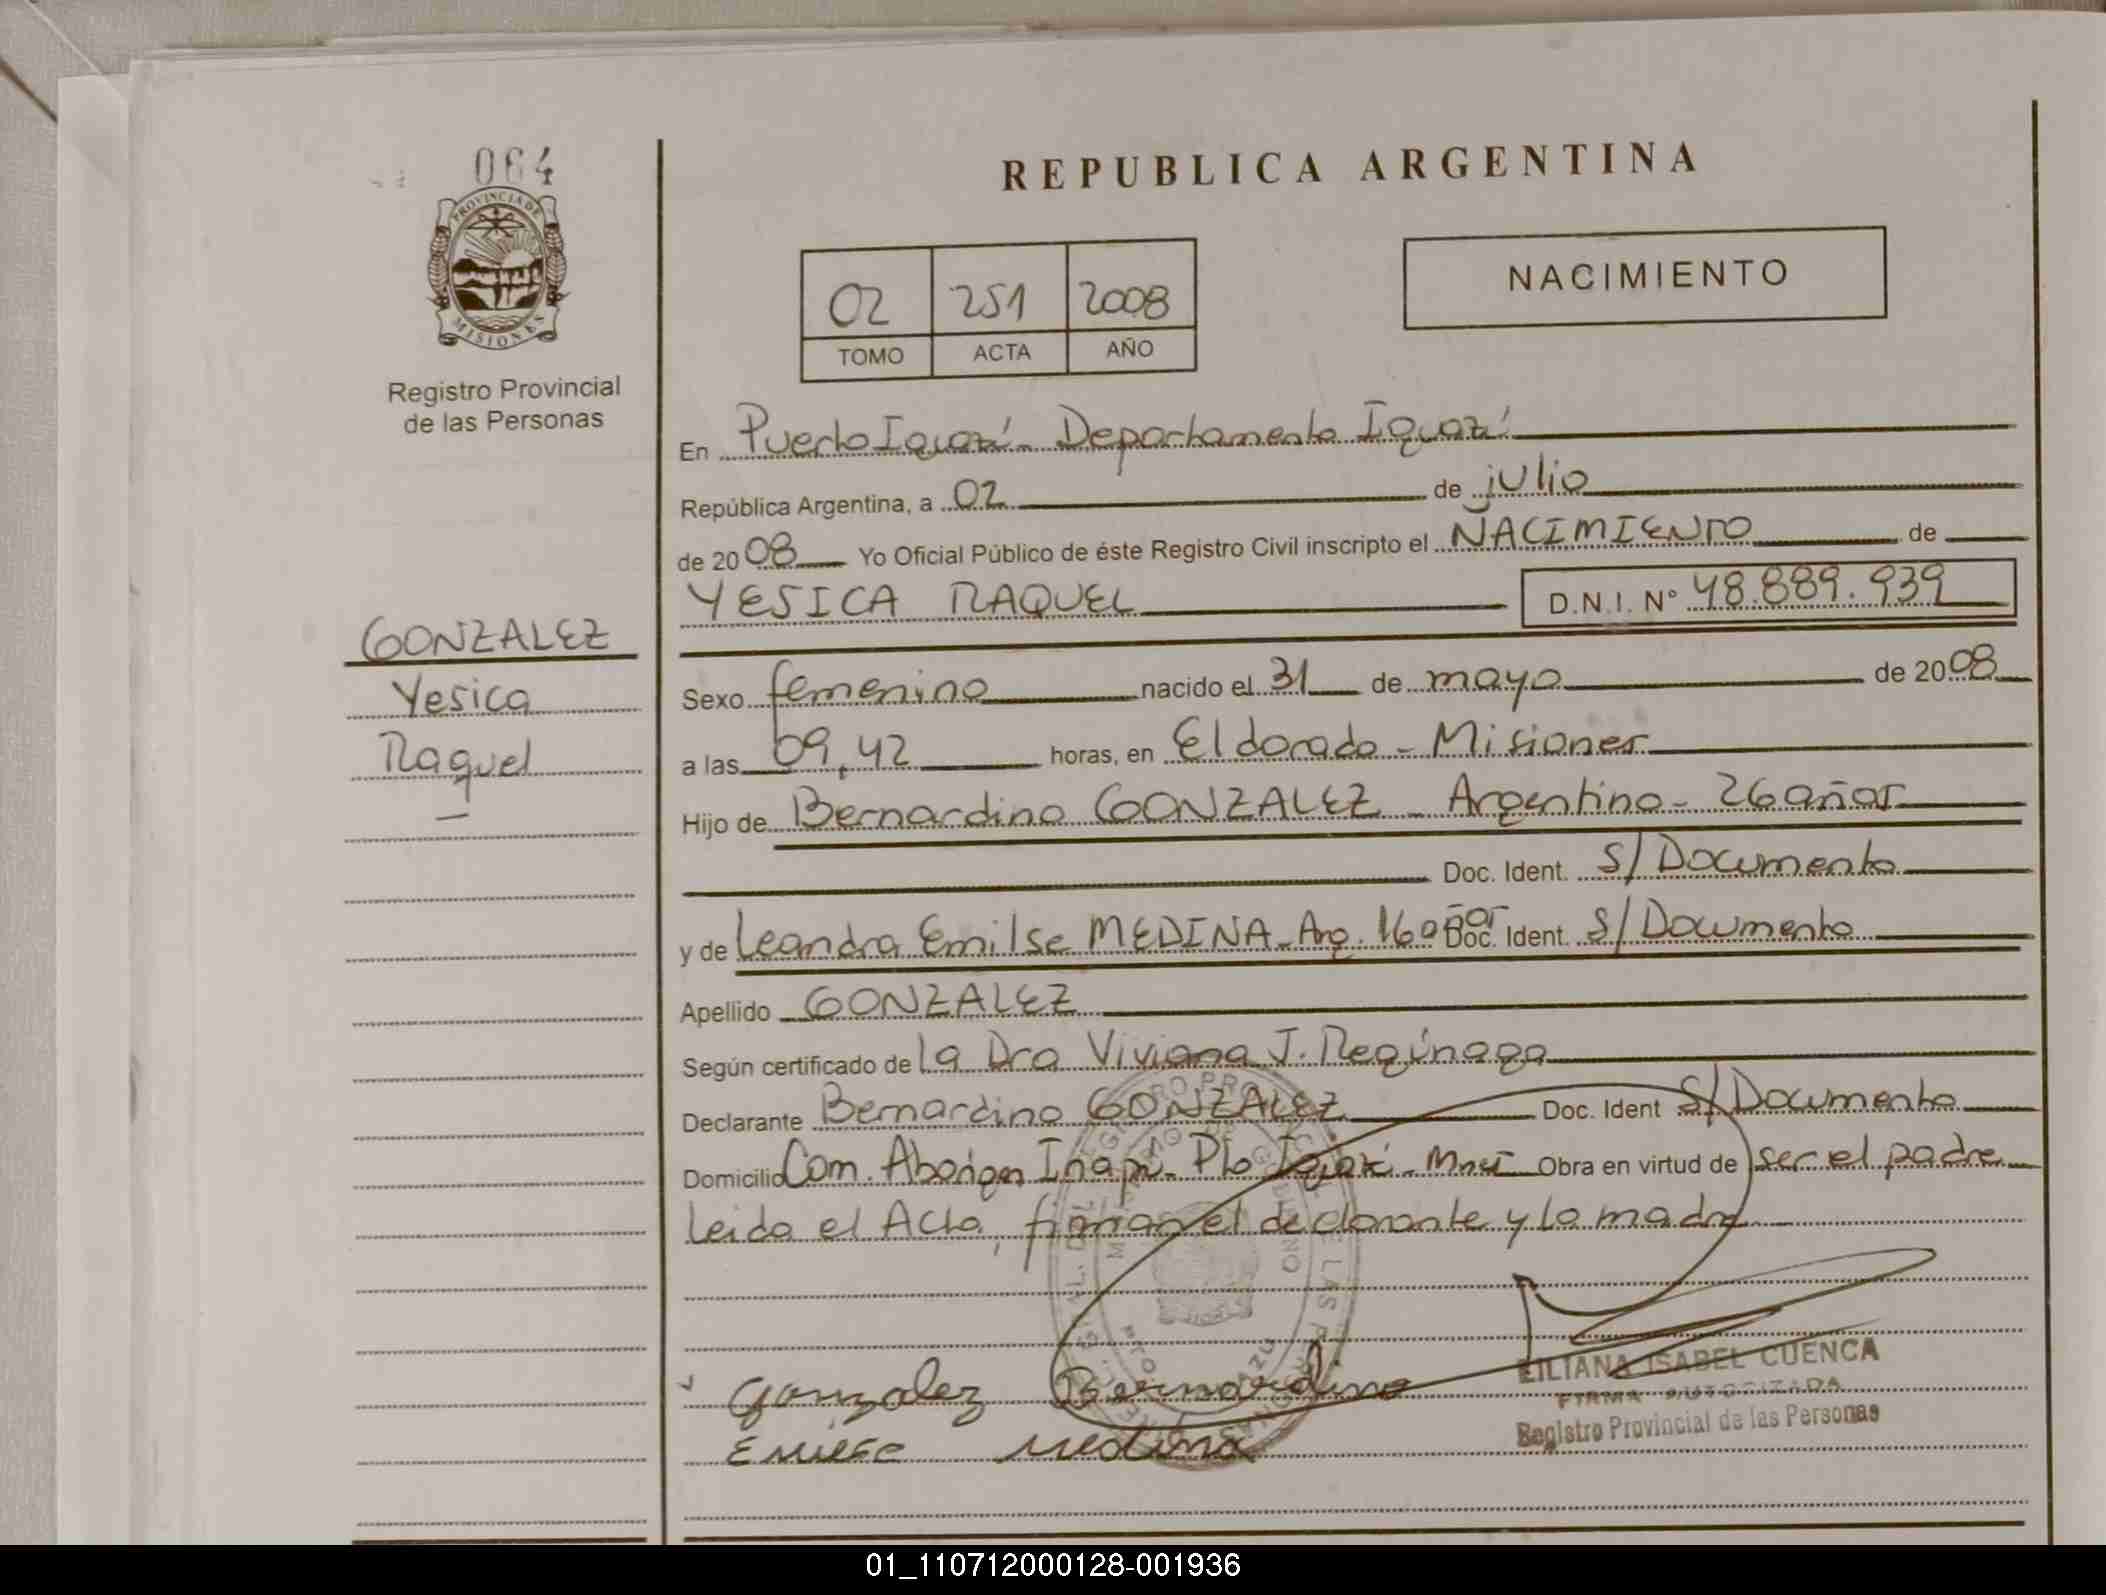 064
PROVINCIA DE
MISIONES
Registro Provincial
de las Personas
GONZALEZ
Yesica
Raquel
—
REPUBLICA ARGENTINA
02 251 2008
TOMO ACTA AÑO
NACIMIENTO
En Puerto Iguazú - Departamento Iguazú
República Argentina, a 02 de julio
de 2008 Yo Oficial Público de éste Registro Civil inscripto el NACIMIENTO de
YESICA RAQUEL D.N.I. Nº 48.889.939
Sexo femenino nacido el 31 de mayo de 2008
a las 09,42 horas, en Eldorado - Misiones
Hijo de Bernardino GONZALEZ - Argentino - 26 años
Doc. Ident. S/ Documento
y de Leandra Emilse MEDINA - Arg. 16 años Doc. Ident. S/ Documento
Apellido GONZALEZ
Según certificado de la Dra Viviana J. Regúnaga
Declarante Bernardino GONZALEZ Doc. Ident S/ Documento
Domicilio Com. Aborigen - Pto Iguazú - Mnes Obra en virtud de ser el padre
Leida el Acta, firman el declarante y la madre
Gonzalez Bernardino
Emilse Medina
LILIANA ISABEL CUENCA
FIRMA AUTORIZADA
Registro Provincial de las Personas
01_110712000128-001936